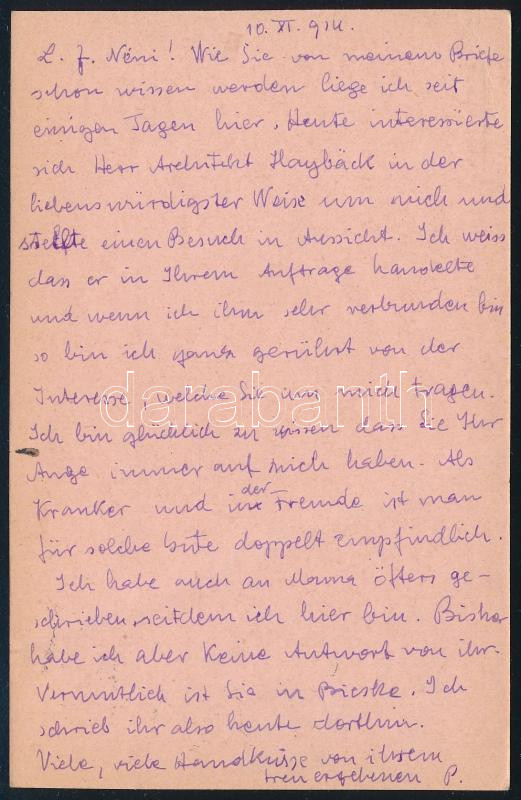 10. XI. 914.
L. J. Néni! Wie Sie von meinem Briefe
schon wissen werden liege ich seit
einigen Tagen hier. Heute interessierte
sich Herr Architekt Haybäck in der
liebenswürdigster Weise um mich und
stellte einen Besuch in Aussicht. Ich weiss
dass er in Ihrem Auftrage handelte
und wenn ich ihm sehr verbunden bin
so bin ich ganz gerührt von der
Interesse, welche Sie um mich tragen.
Ich bin glücklich zu wissen dass Sie Ihr
Auge immer auf mich haben. Als
Kranker und in der Fremde ist man
für solche Güte doppelt empfindlich.
Ich habe auch an Mama öfters ge-
schrieben, seitdem ich hier bin. Bisher
habe ich aber keine Antwort von ihr.
Vermutlich ist Sie in Bicske. Ich
schrieb ihr also heute dorthin.
Viele, viele Handküsse von ihrem
treu ergebenen P.
darabanth